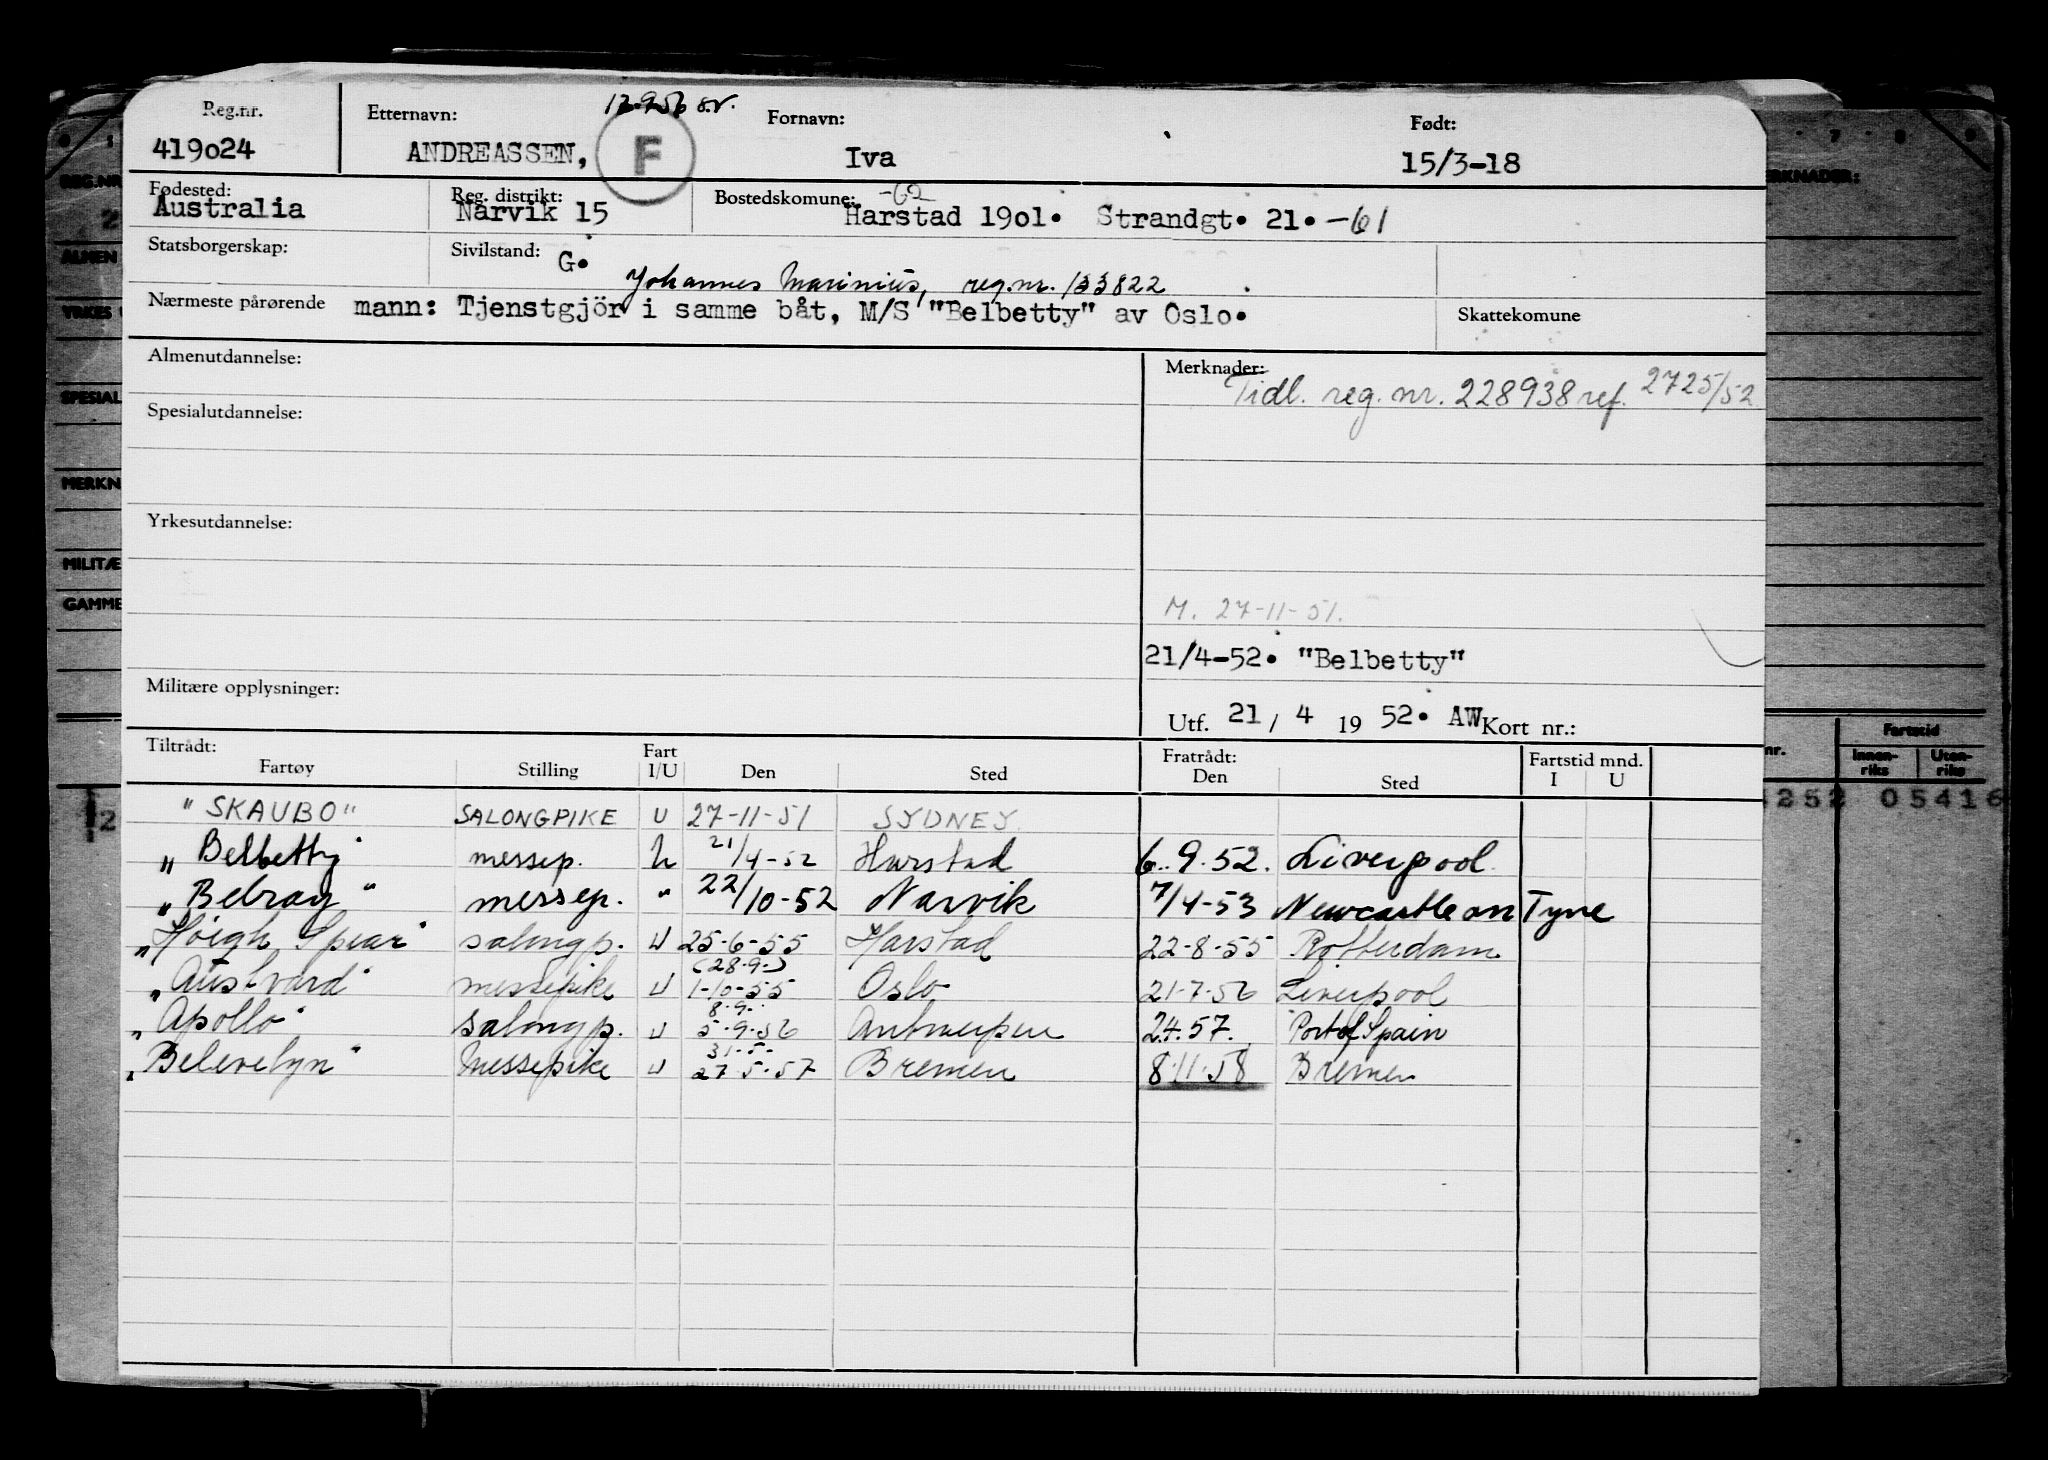 Reg.nr. Etternavn: 12.9.56 s.v. Fornavn: Født:
419o24 ANDREASSEN, F Iva 15/3-18
Fødested: Reg. distrikt: Bostedskomune: -62
Australia Narvik 15 Harstad 19o1. Strandgt. 21. -61
Statsborgerskap: Sivilstand: G.
Johannes Marinius, reg.nr. 133822
Nærmeste pårørende mann: Tjenstgjör i samme båt, M/S "Belbetty" av Oslo. Skattekomune
Almenutdannelse: Merknader:
Tidl. reg. nr. 228938 ref. 2725/52
Spesialutdannelse:
Yrkesutdannelse:
M. 27-11-51.
21/4-52. "Belbetty"
Militære opplysninger:
Utf. 21 / 4 19 52. AW Kort nr.:
Tiltrådt: Fart Fratrådt: Fartstid mnd.
Fartøy Stilling I/U Den Sted Den Sted I U
"SKAUBO" SALONGPIKE U 27-11-51 SYDNEY
"Belbetty" messep. U 21/4-52 Harstad 6.9.52. Liverpool
"Belray" messep. " 22/10-52 Narvik 7/4-53 Newcastle on Tyne
"Höigh Spear" salongp. U 25-6-55 Harstad 22-8-55 Rotterdam
(28.9.)
"Austvard" messepike U 1-10-55 Oslo 21-7-56 Liverpool
8.9.
"Apollo" salongp. U 5-9-56 Antwerpen 2.4.57. Port of Spain
31-5-
"Belevelyn" Messepike U 27-5-57 Bremen 8.11.58 Bremen
REG.NR
ALMEN
YRKES
SPESIAL
MERKN
MILITÆ
GAMME
RKNADER:
nr.
Fartstid
Innen-riks Uten-riks
4252 05416
2